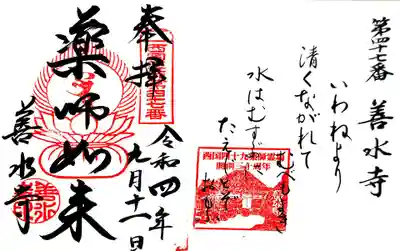 第四十七番 善水寺
いわねより
清くながれて
水はむすぶ
奉拝
西国薬師第四十七番
薬師如来
善水寺
令和四年
九月十一日
西国四十九薬師霊場
開創三十周年